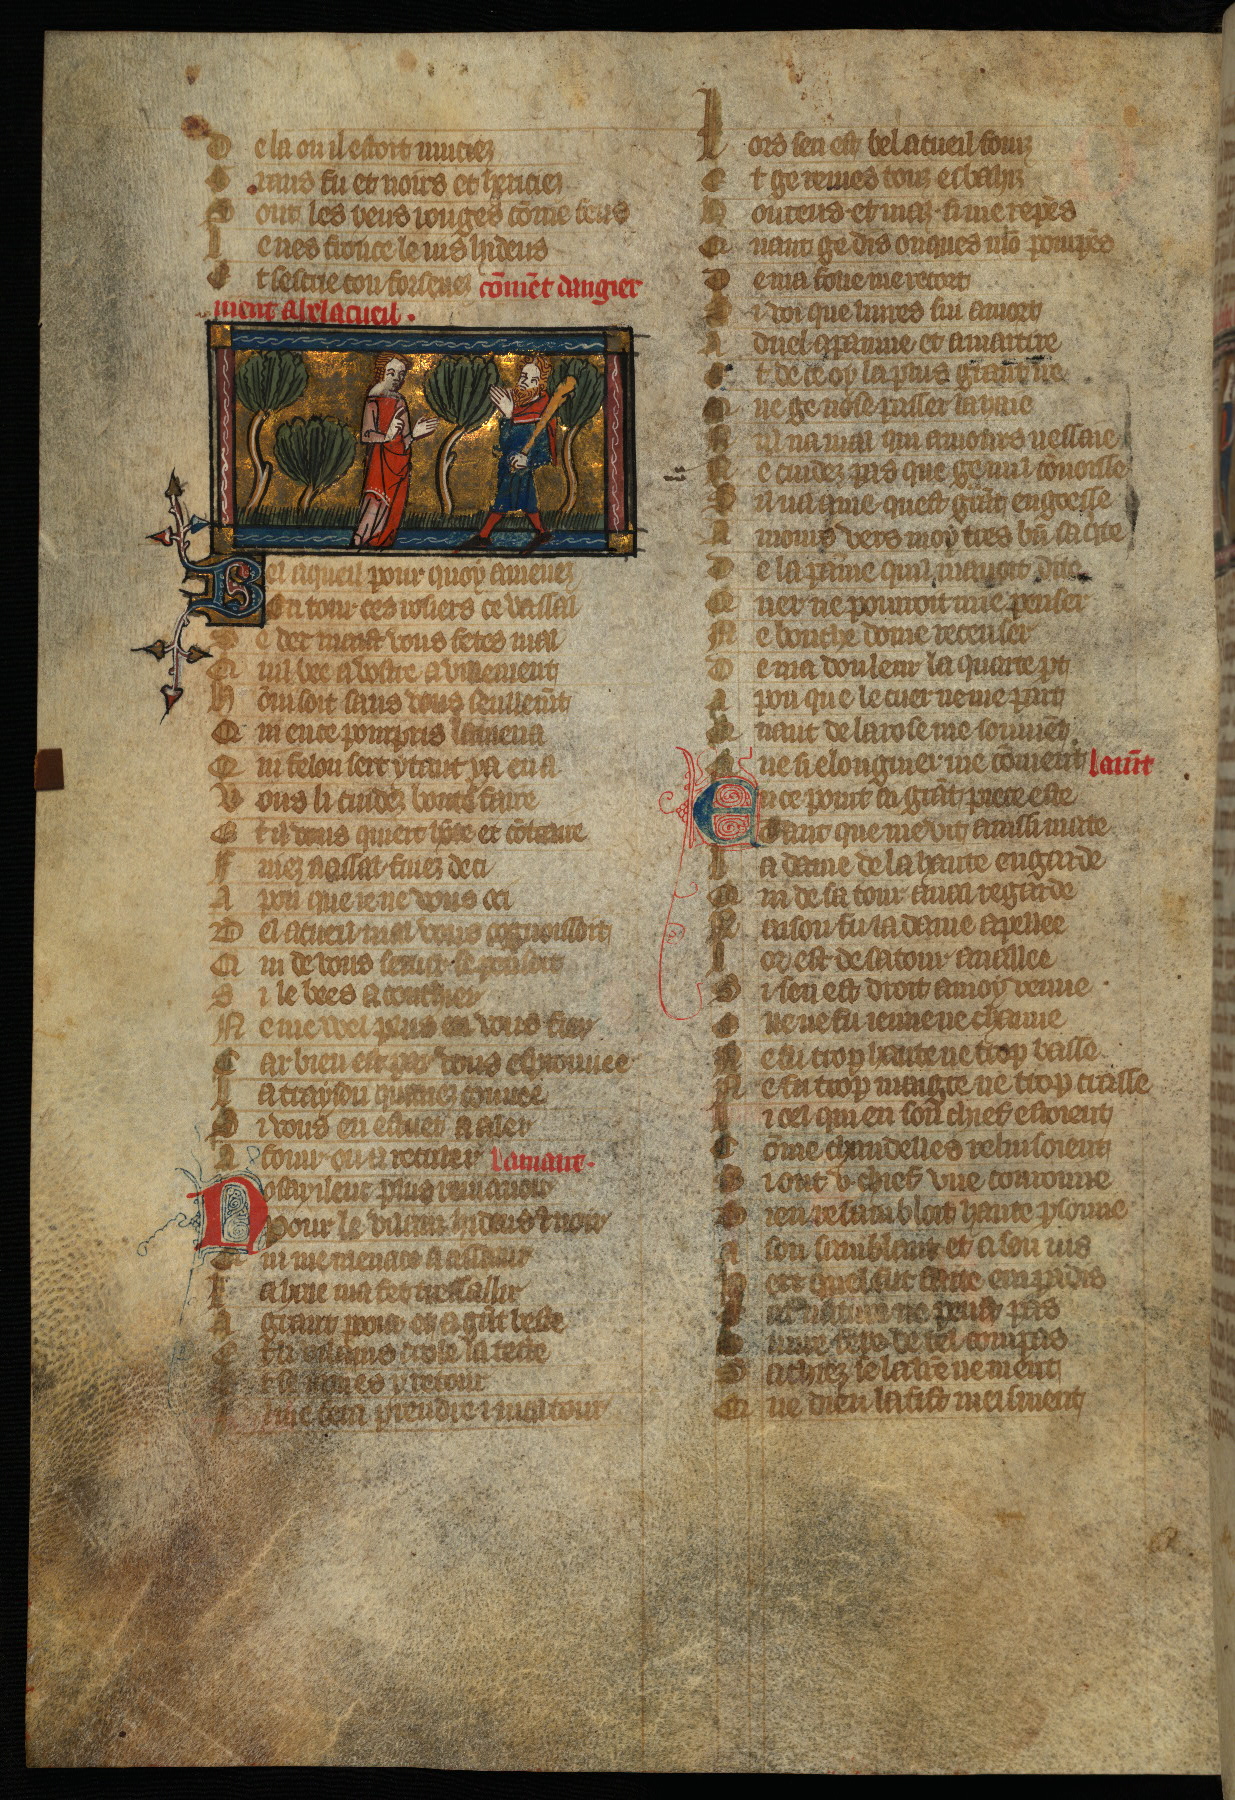 De la ou il estoit muciez
Grans fu et noirs et hericiez
Sout les yeus rouges cōme feus
Le nes fronce le vis hideus
Et sescrie con forsenez cōmēt dangier
vient a bel acueil.
Bel aqueil pour quoy amenez
En tour ces rosiers ce vassal
Se der maist vous fetes mal
Quil bee a vostre avillement
Hōni soit sans vous seullemēt
Qui en ce pourpris lamena
Qui felon sert ytant ya en a
Vous li cuidez bonte faire
Et il vous quiert hōte et cōtraire
Fuiez vassal fuiez de ci
A pou que ie ne vous oci
Bel acueil mal vous cognoissoit
Qui de vous servir se penoit
Si le bees a conchier
Ne me veel plus en vous fier
Car bien est par vous esprouvee
La trayson quavez couvee
Si vous en estuet a aler
A fouir ou a reculer Lamant.
Nosay ileuc plus remanoir
Pour le vilain hideus et noir
Qui me menace a assaillir
La haie ma fet tressallir
A grant poour et a grāt heste
Et li vilains crole la teste
Et se iames y retour
Il me fera prendre i mal tour
Lors sen est bel acueil fouiz
Et ge remes touz esbahiz
Honteus et mat si me repēs
Quant ge dis onques mō pompēs
De ma folie me recort
Si voi que livres sui a mort
A duel a paine et a martire
Et de ce oy la plus grant ire
Que ge nose passer la haie
Nul na mal qui amours nessaie
Ne cuidez pas que ge nul cōnoisse
Sil na ame quest grāt engoesse
Amours vers moy tres bn̄ saqte
De la paine quil mavoit dite
Cuer ne pourroit mie penser
Ne bouche dome recenser
De ma douleur la quarte pt
A pou que le cuer ne me part
Quant de la rose me souviēt
Que si elongnier me cōvient Lamāt
En ce point ai grāt piece este
Tant que me vit ainssi mate
La dame de la haute engarde
Qui de sa tour aval regarde
Raison fu la dame apellee
Lors est de sa tour avallee
Si sen est droit a moy venue
Ne ne fu ieune ne chanue
Ne fu trop haute ne trop basse
Ne fu trop maigre ne trop crasse
Li oel qui en son chief estoient
Cōme chandelles reluisoient
Si out v̄ chief vne couronne
Bien resambloit haute psonne
A son samblant et a son vis
Pert quel fut faite em padis
Car nature ne peust pas
Oevre fere de tel compas
Sachiez se la lr̄e ne ment
Que dieu la fist meisment